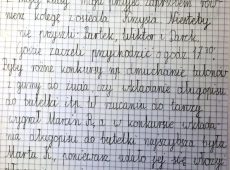 z mojej klasy. Moje przyjęc zaprosiłem rów-
nież kolegę Krzysia Niestety
nie przyszli Bartek, Wiktor i Darek.
goście zaczęli przychodzić o godz 17³⁰
Były różne konkursy np dmuchanie balonów
z gumy do żucia czy wkładanie długopisu
do butelki itp. W rzucaniu do tarczy
wygrał Marcin R, a w konkursie wkłada
nia długopisu do butelki najszybsza była
Marta K, ponieważ udało jej się włożyć